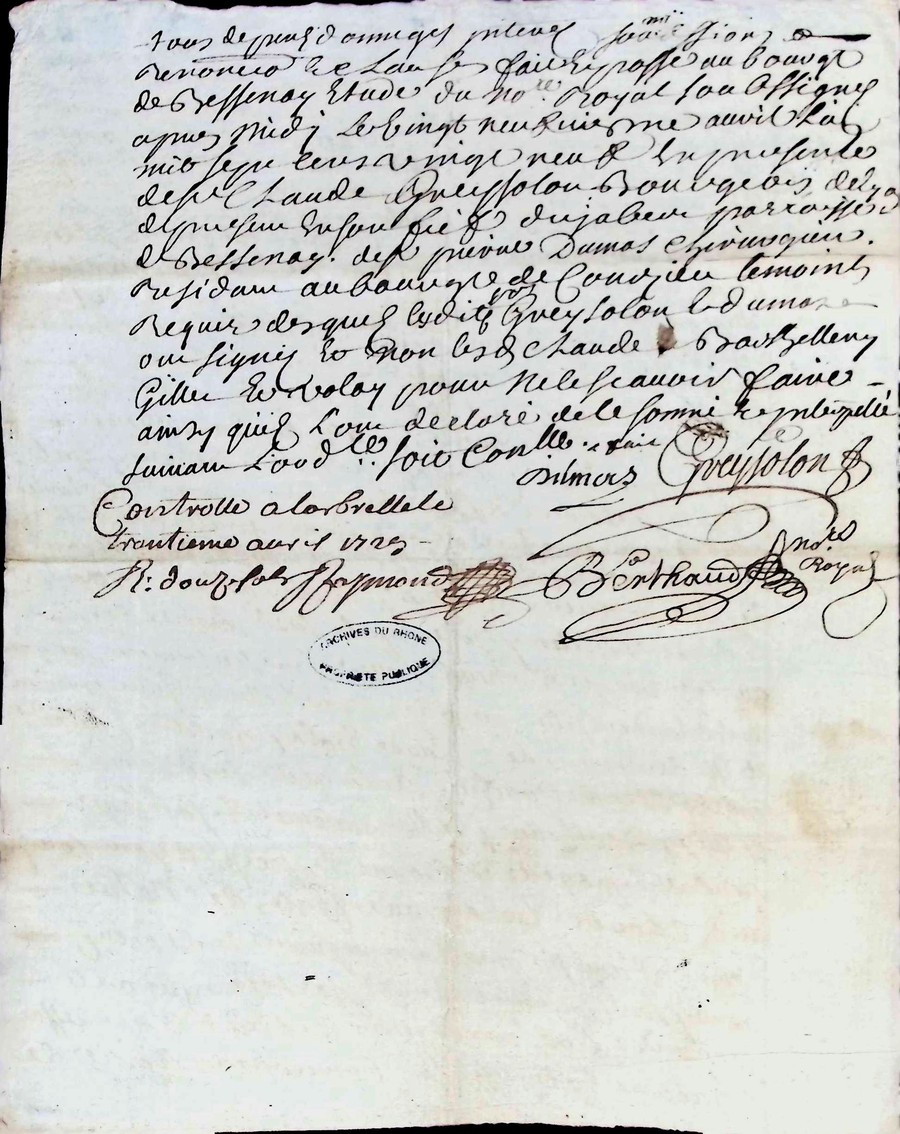 tous depens domages interes soumissions
Renoncion et clauses fait et passé au bourgt
de Bessenay Etude du no.re Royal sou Signé
apres midj le vingt neufvieme auvril L'an
mil sept cens vingt neuf En presence
de sr Claude Greysolon Bourgeois de Lyon
de present En son fief du jabert parroisse d
de Bessenay. de sr pierre Dumas chirurgien
Residant au bourgt de Courzieu temoins
Requis desquels lesdits srs Greysolon et dumas
ont signés et non lesd Claude Barthellemy
Gille et Volay pour ne le scavoir faire
ainsy quils L'ont declaré de ce sommé et interpellé
suivant L'ord.ce soit Con.lle
Dumas Greysolon
Controllé a larbrelle le
trentieme auvril 1729
R: douze sols Raymond
Berthaud no.re Royal
ARCHIVES DU RHONE
PROPRIETE PUBLIQUE